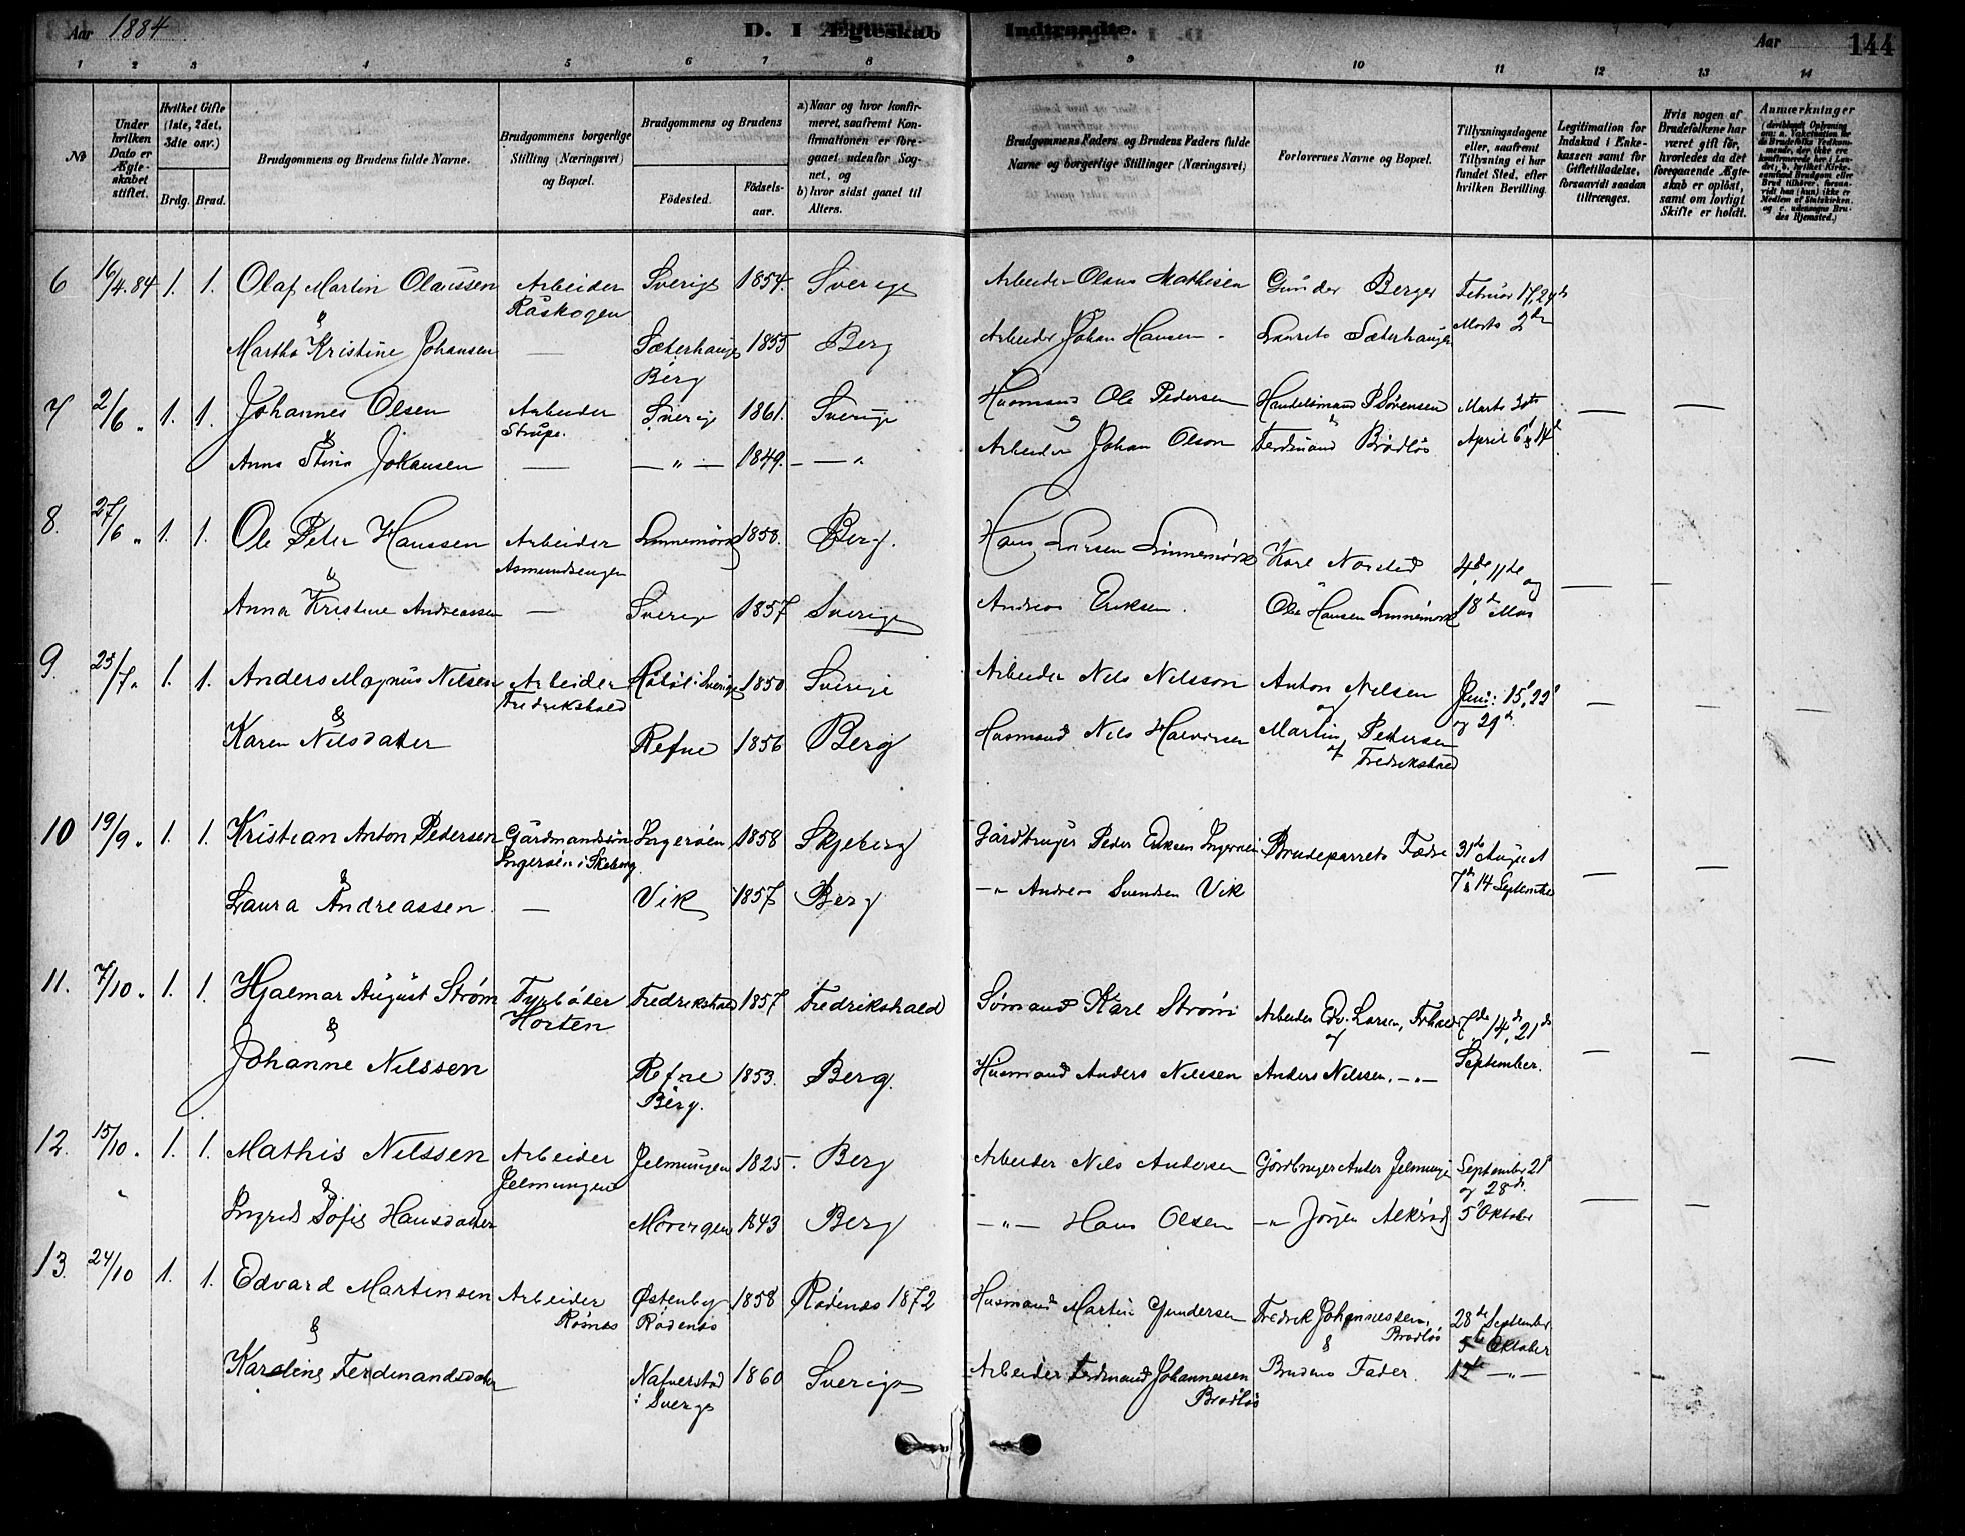 Aar 1884
D. I Ægteskab Indtraadte.
Aar 144
1 2 3 4 5 6 7 8 9 10 11 12 13 14
No
Under hvilken Dato er Ægteskabet stiftet.
Hvilket Gifte (1ste, 2det, 3die osv.)
Brdg. Brud.
Brudgommens og Brudens fulde Navne.
Brudgommens borgerlige Stilling (Næringsvei) og Bopæl.
Brudgommens og Brudens
Födested. Födselsaar.
a) Naar og hvor konfirmeret, saafremt Konfirmationen er foregaaet udenfor Sognet, og
b) hvor sidst gaaet til Alters.
Brudgommens Faders og Brudens Faders fulde Navne og borgerlige Stillinger (Næringsvei)
Forlovernes Navne og Bopæl.
Tillysningsdagene eller, saafremt Tillysning ei har fundet Sted, efter hvilken Bevilling.
Legitimation for Indskud i Enkekassen samt for Giftetilladelse, forsaavidt saadan tiltrænges.
Hvis nogen af Brudefolkene har været gift för, hvorledes da det foregaaende Ægteskab er oplöst, samt om lovligt Skifte er holdt.
Anmærkninger
6 16/4.84 1. 1. Olaf Martin Olaussen Arbeider Råskogen Sverige 1854. Sverige Arbeider Olaus Mathisen Gunder Berger Februar 17, 24de
Martha Kristine Johansen — Sæterhaugen Berg 1855 Berg Arbeider Johan Hansen Laurets Sæterhaugen Marts 2de
7 2/6 " 1. 1. Johannes Olsen Arbeider Strupe. Sverig 1861. Sverige Husmand Ole Pedersen Handelsmand P Sörensen Marts 30te — —
&
Anna Stina Johansen — — " — 1849. — — " Arbeider Johan Olson Ferdinand Brödlös April 6 & 14d
8. 27/6 " 1. 1. Ole Peter Hanssen Arbeider Asmundsengen Linnemörk 1858. Berg. Hans Larsen Linnemörk Karl Norsted 4de, 11de og — —
&
Anna Kristine Andreassen — Sverige 1857 Sverige Andreas Eriksen. Ole Hansen Linnemörk 18de Mai
9. 25/7 " 1. 1. Anders Magnus Nilsen Arbeider Fredrikshald Håböl i Sverige 1850 Sverige Arbeider Nils Nilsson Anton Nilsen Juni: 15d, 22d — — —
& og
Karen Nilsdatter Refne 1856 Berg Husmand Nils Halvorsen Martin Pedersen af Fredrikshald og 29d.
10 19/9 " 1. 1. Kristian Anton Pedersen Gårdmandssön Ingeröen i Skeberg Ingeröen 1858 Skjeberg Gårdbruger Peder Eriksen Ingeröen Brudeparrets Fædre 31te August — —
&
Laura Andreassen. — Vik 1857 Berg — " Andreas Svendsen Vik 7de & 14 September
11. 7/10 " 1. 1. Hjalmar August Strøm Fyrböter Horten Fredrikshald 1857 Fredrikshald Sömand Karl Ström Arbeider Edv. Larsen, Frhald 7de, 14de, 21de — — —
& og
Johanne Nilssen Refne Berg. 1853. Berg. Husmand Anders Nilssen Anders Nilssen. — " — September.
12. 15/10 " 1. 1. Mathis Nilssen Arbeider Jelmungen Jelmungen 1825. Berg Arbeider Nils Andersen Gårdbruger Anders Jelmungen September 21d og 28de. —
&
Ingrid Sofie Hansdatter 1843 Berg — " — Hans Olsen — " Jörgen 5d Oktober
13. 24/10 1. 1. Edvard Martinsen Arbeider Römes Østenby Rödenæs 1858 Rödenæs 1872 Husmand Martin Gundersen Fredrik Johannessen, Brödlös 28de September
& &
5te Oktober
Karoline Ferdinandsdatter Nafverstad i Sverge 1860 Sverige Arbeider Ferdinand Johannessen Brödlös Brudens Fader. 12te — " —